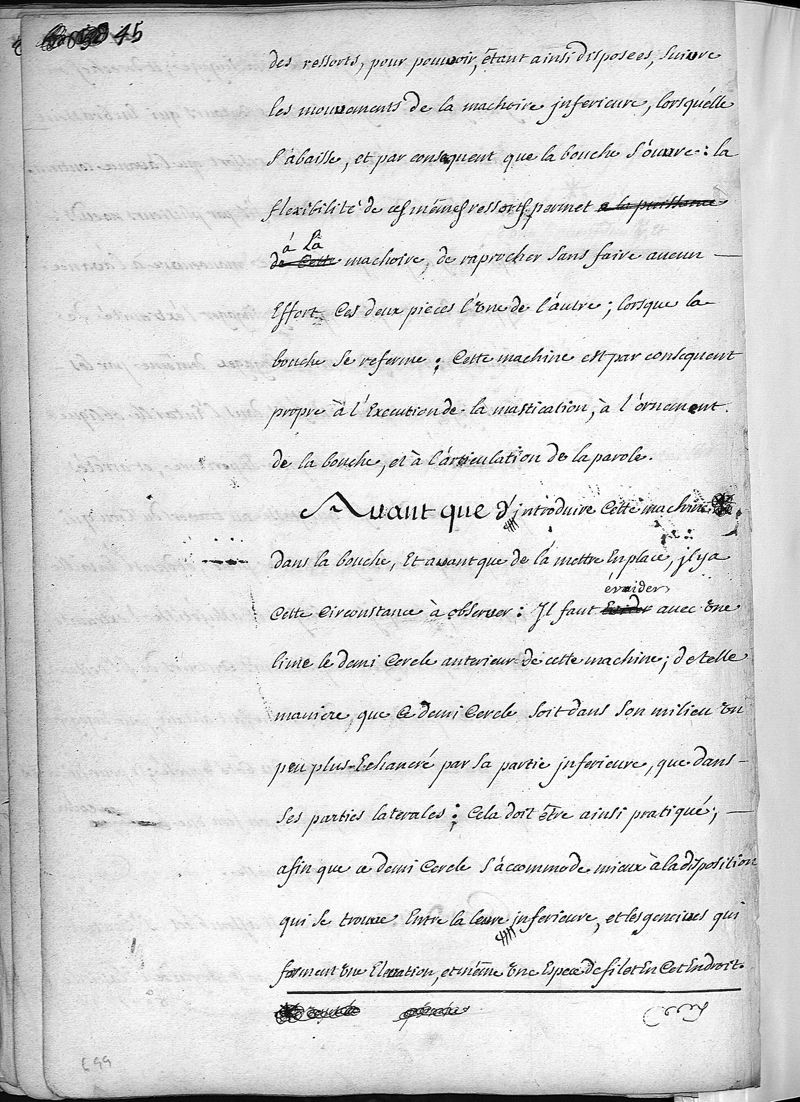 45
des ressorts, pour pouvoir, êtant ainsi disposées, suivre
les mouvements de la machoire jnferieure, lorsquélle
s'ábaisse, et par consequent que la bouche s'ouvre : la
flexibilité de ces mêmes ressorts, permet a la puissance
á la
de cette machoire, de raprocher sans faire aucun —
Effort, Ces deux pieces l'vne de l'áutre ; lorsque la
bouche se referme ; Cette machine est par consequent
propre à l'Execution de la mastication, à l'órnement
de la bouche, et à l'árticulation de la parole.
Avant que d'introduire Cette machine
dans la bouche, Et avant que de lá mettre En place, jl y a
Cette Circonstance à observer : Jl faut Evider avec vne
évuider
lime le demi Cercle anterieur de cette machine ; de telle
maniere, que Ce demi Cercle soit dans son milieu vn
peu plus Echancré par sa partie jnferieure, que dans —
ses parties laterales ; Cela doit être ainsi pratiqué, —
afin que ce demi Cercle s'áccommode mieux à la disposition
qui se trouve Entre la levre jnferieure, et les gencives qui
forment vne Elevation, et même vne Espece de filet En Cet Endroit.
699